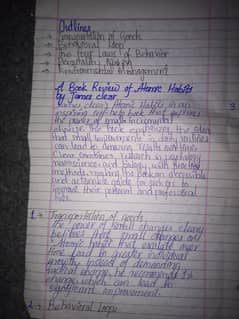 Outlines
→ Transportation of Goods
→ Behavioral Loop
→ The four Laws of Behavior
→ Environmental Management
A Book Review of Atomic Habits
by James clear
James clear's Atomic Habits is an
inspiring self-help book that outlines
the power of small incremental
changes. The book explores the idea
that small improvements in daily routines
can lead to Amazing results over time.
Clear combines research in psychology,
neuroscience and biology with practical
methods, making the book an accessible
and actionable guide for
improve their personal and professional
lives.
1- Transportation of goods
The power of small changes clear
believes that small changes or
"Atomic habits" that over
time lead to greater individual
growth. Instead of demanding
radical change, he recommends 1%
change which can lead to
significant improvement.
2- Behavioral Loop
3